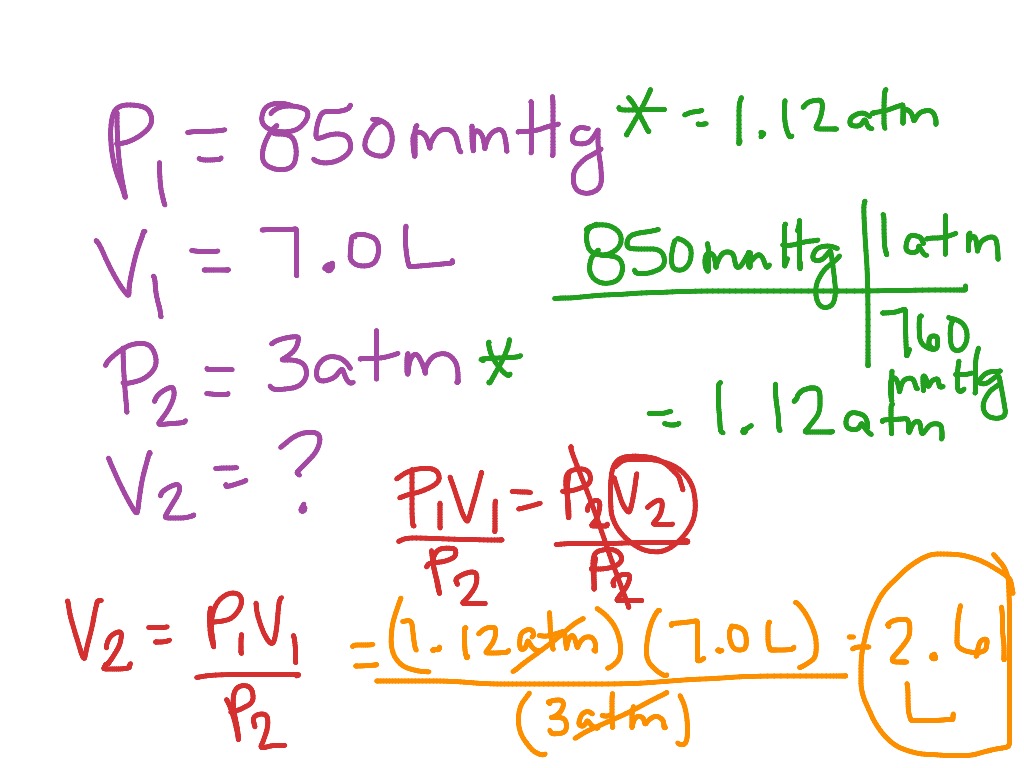 P₁ = 850mmHg * = 1.12atm
V₁ = 7.0L
850mmHg | 1atm
760 mmHg
P₂ = 3atm *
= 1.12atm
V₂ = ?
P₁V₁ = P₂V₂
P₂ P₂
V₂ = P₁V₁ = (1.12atm)(7.0L) = 2.61
P₂ (3atm) L